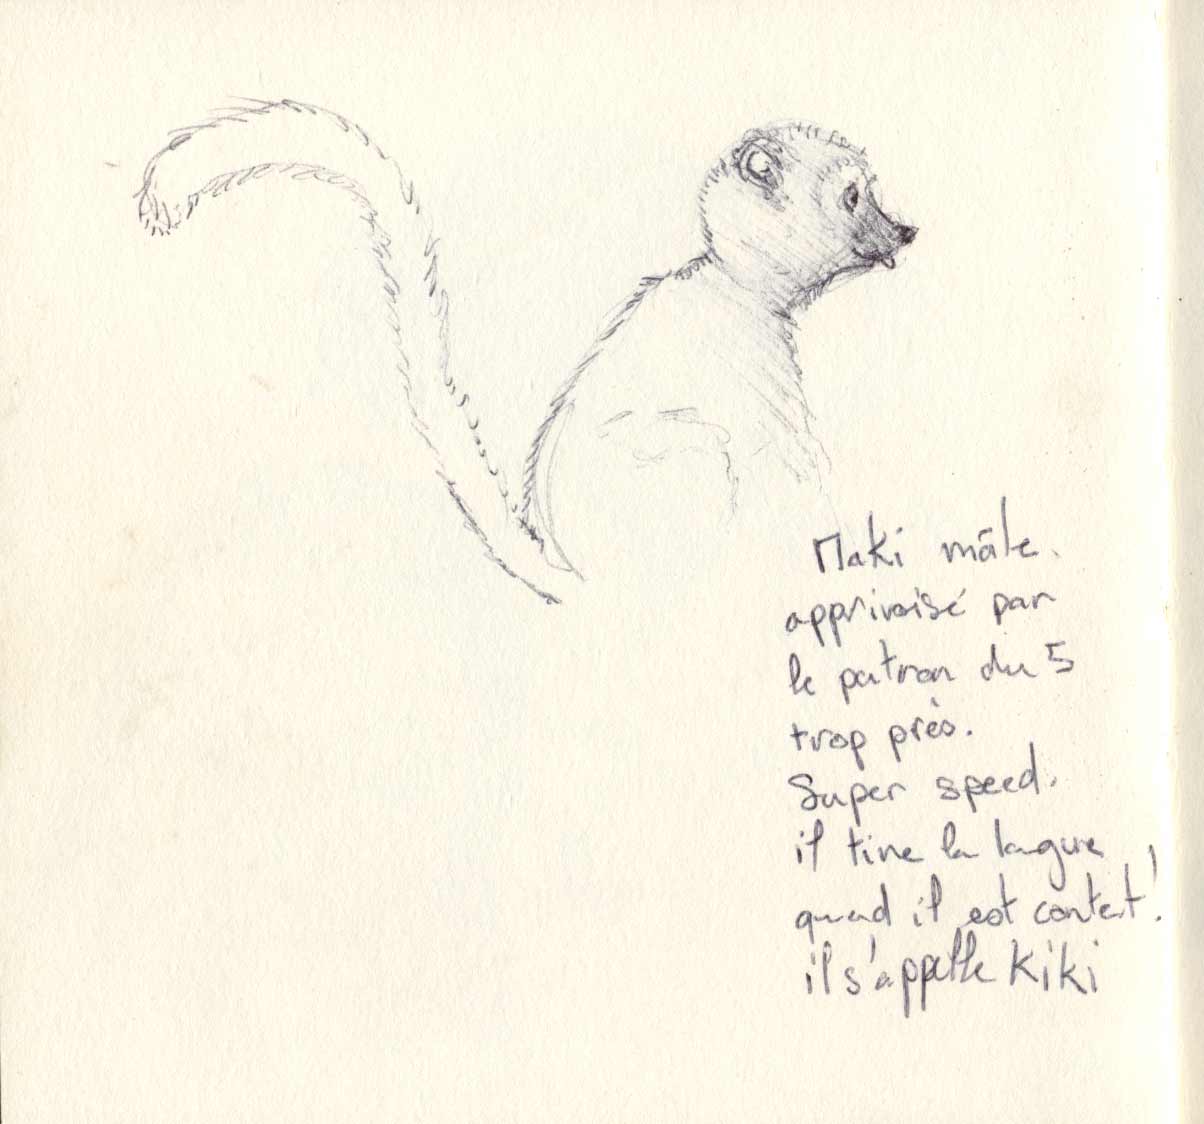 Maki mâle.
apprivoisé par
le patron du 5
trop près.
Super speed.
il tire la langue
quand il est content!
il s'appelle Kiki